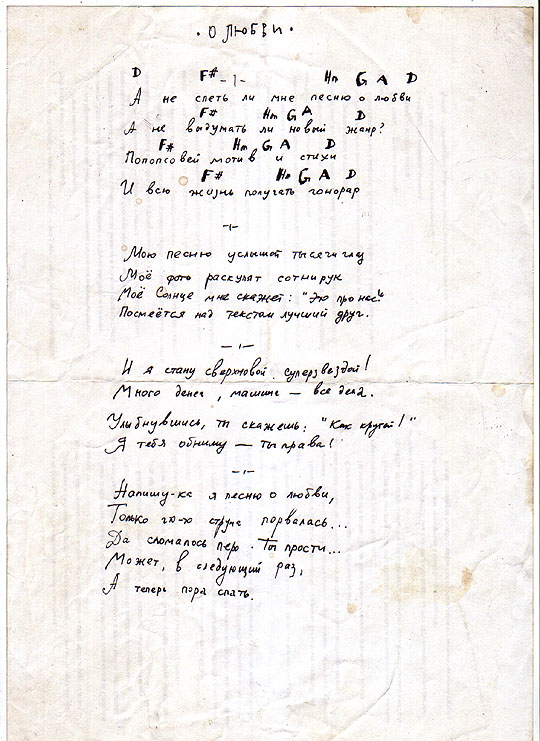 · О ЛЮБВИ ·
D F# -1- Hm G A D
А не спеть ли мне песню о любви
F# Hm G A D
А не выдумать ли новый жанр?
F# Hm G A D
Попопсовей мотив и стихи
F# Hm G A D
И всю жизнь получать гонорар
-1-
Мою песню услышат тысячи глаз
Моё фото раскупят сотни рук
Моё Солнце мне скажет: "Это про нас!"
Посмеётся над текстом лучший друг.
-1-
И я стану сверхновой суперзвездой!
Много денег, машина — все дела.
Улыбнувшись, ты скажешь: "Как крутой!"
Я тебя обниму — ты права!
-1-
Напишу-ка я песню о любви,
Только что-то струна порвалась...
Да сломалось перо. Ты прости...
Может, в следующий раз,
А теперь пора спать.